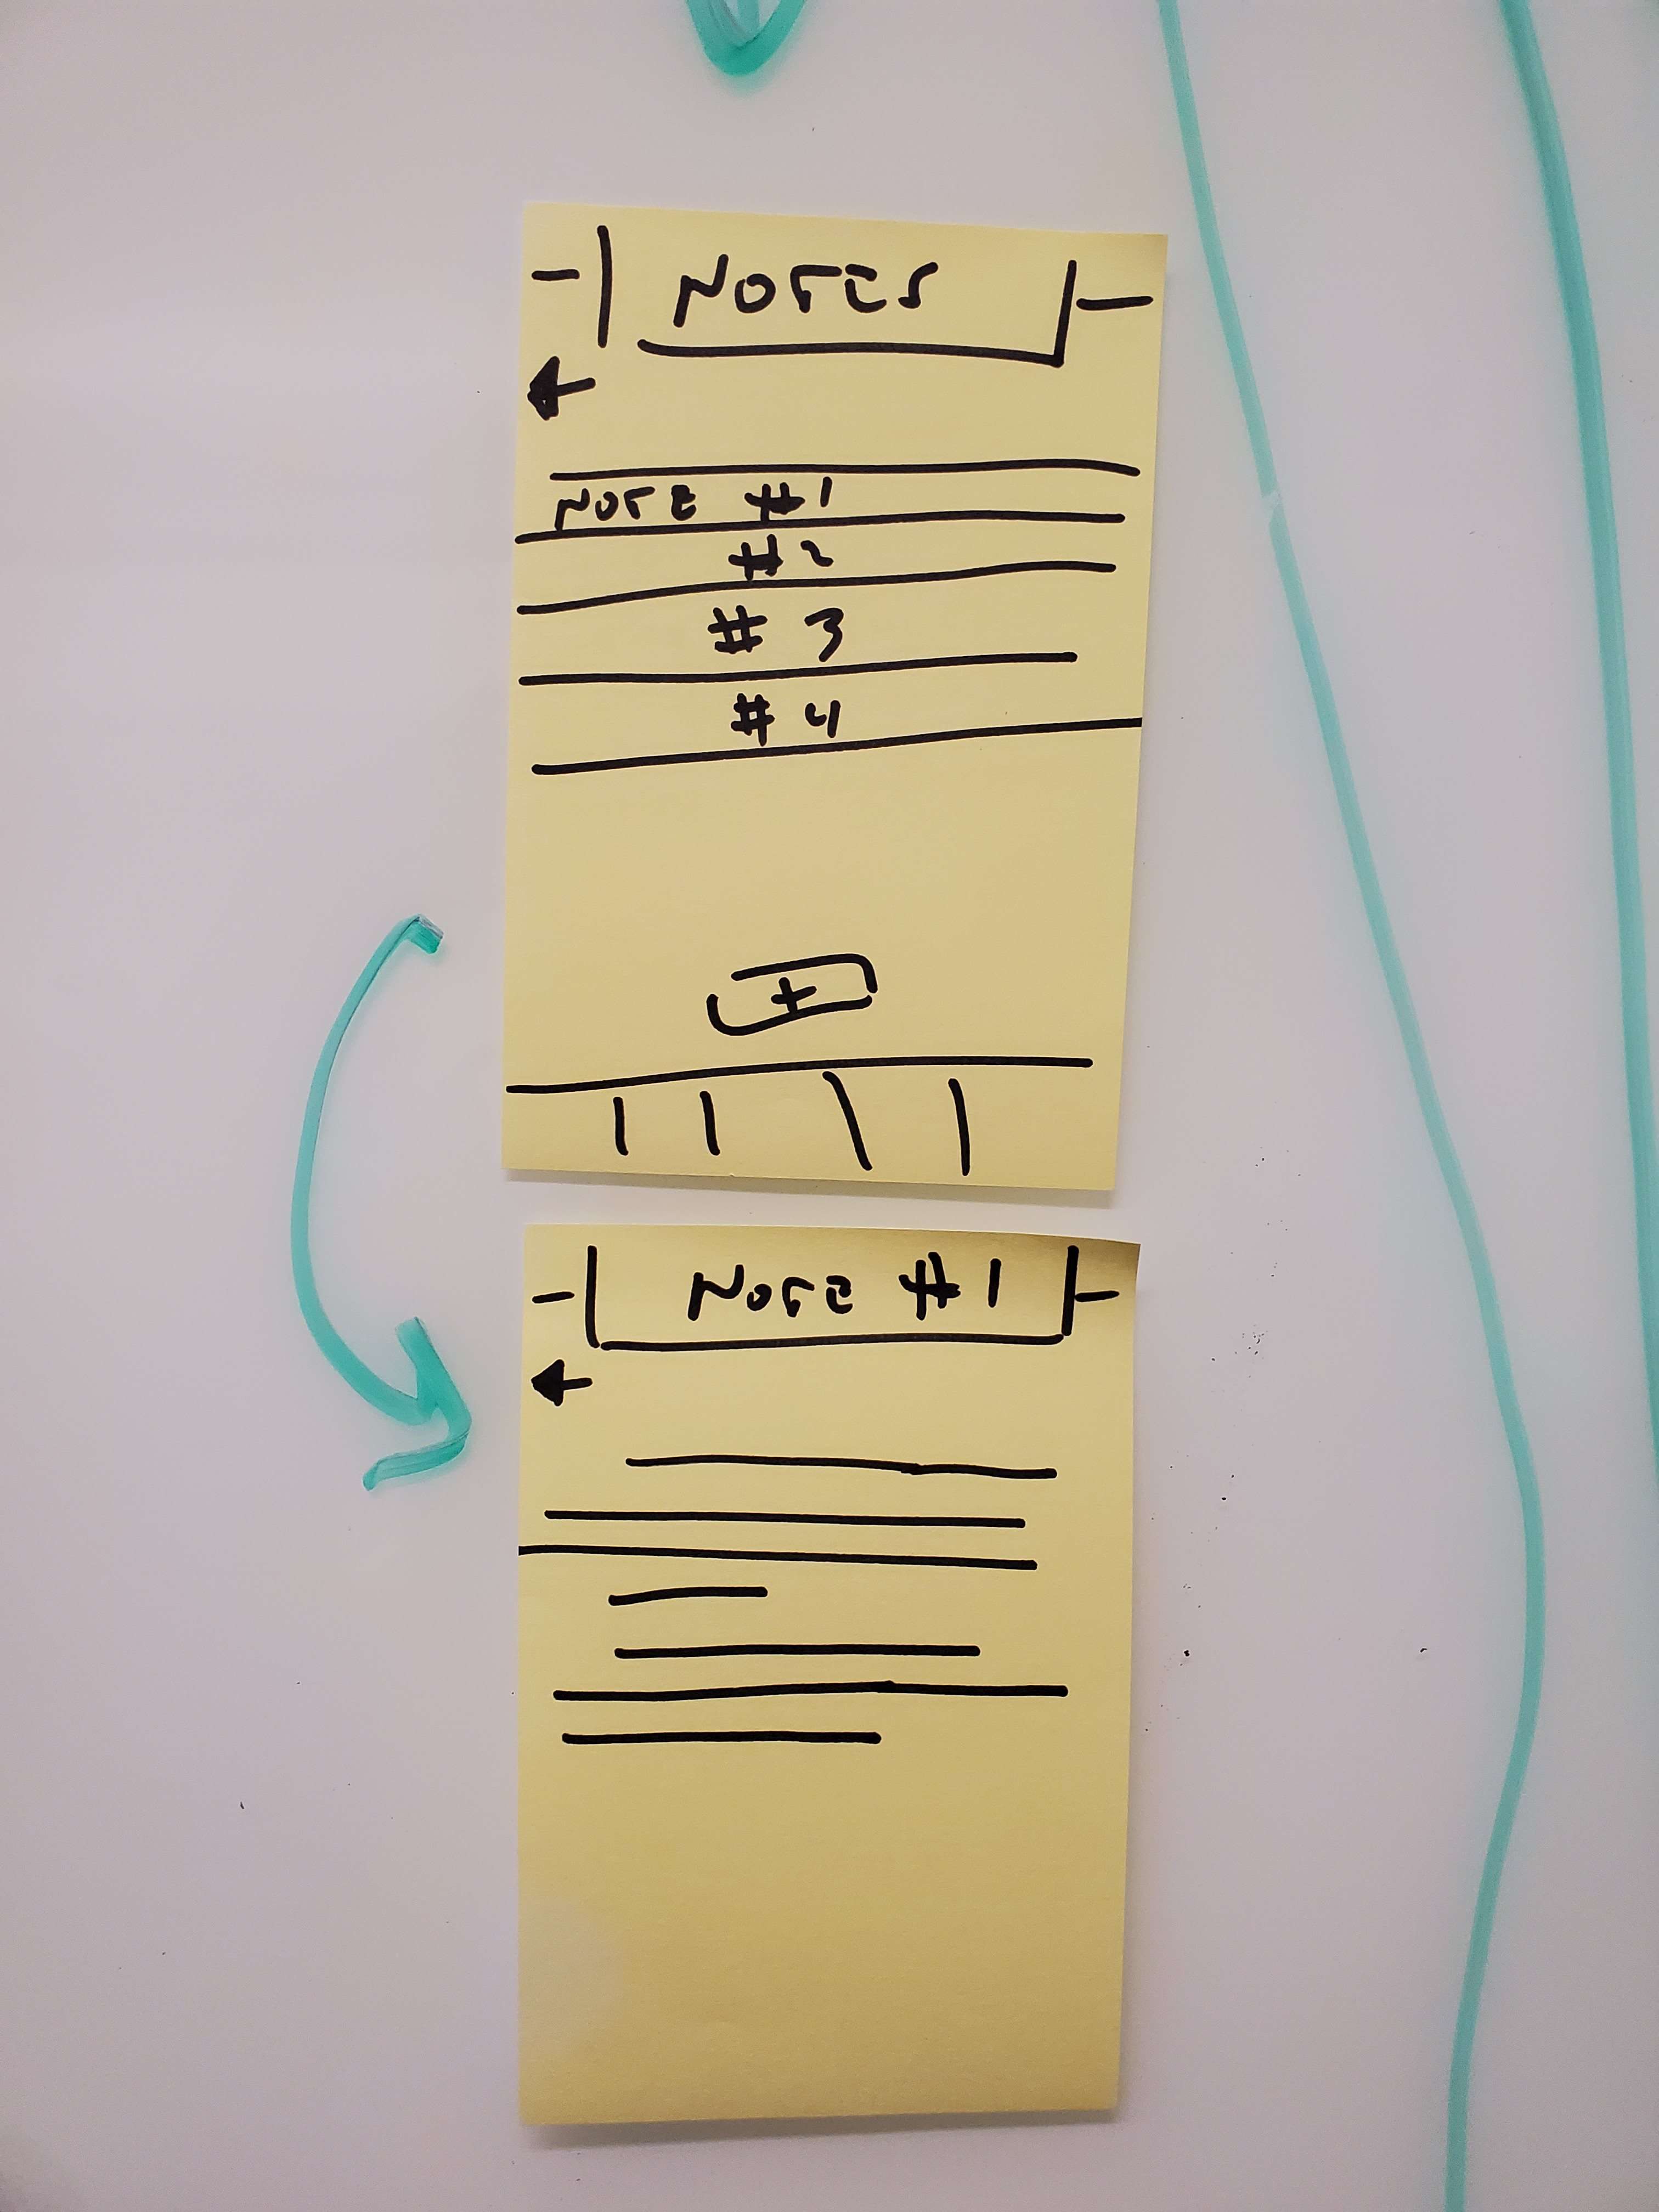 NOTES
NOTE #1
#2
# 3
# 4
+
NOTE #1